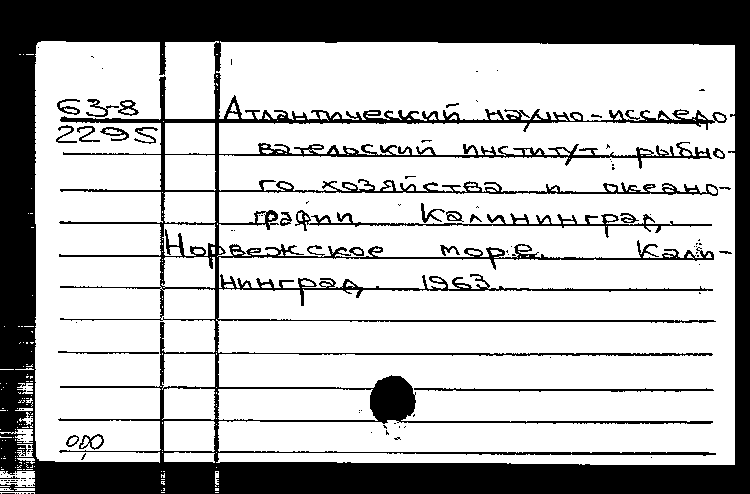 63-8 Атлантический научно-исследо-
2295 вательский институт рыбно-
го хозяйства и океано-
графии, Калининград.
Норвежское море. Кали-
нинград, 1963.
000